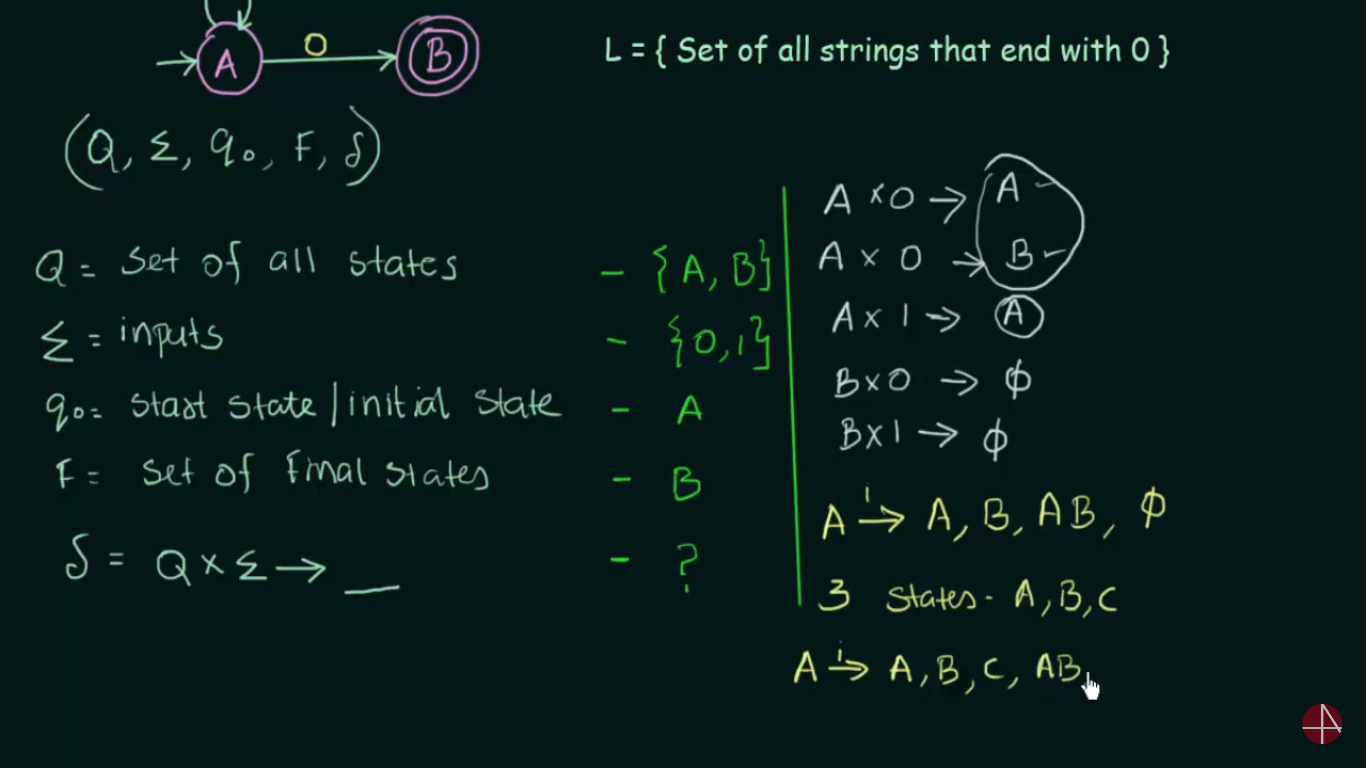 A 0 B
L = { Set of all strings that end with 0 }
(Q, Σ, q₀, F, δ)
Q = Set of all states - {A, B}
Σ = inputs - {0,1}
q₀= start state/initial state - A
F = set of Final states - B
δ = Q × Σ → __ - ?
A × 0 → A
A × 0 → B
A × 1 → A
B × 0 → ϕ
B × 1 → ϕ
A i→ A, B, AB, ϕ
3 states - A, B, C
A i→ A, B, C, AB,